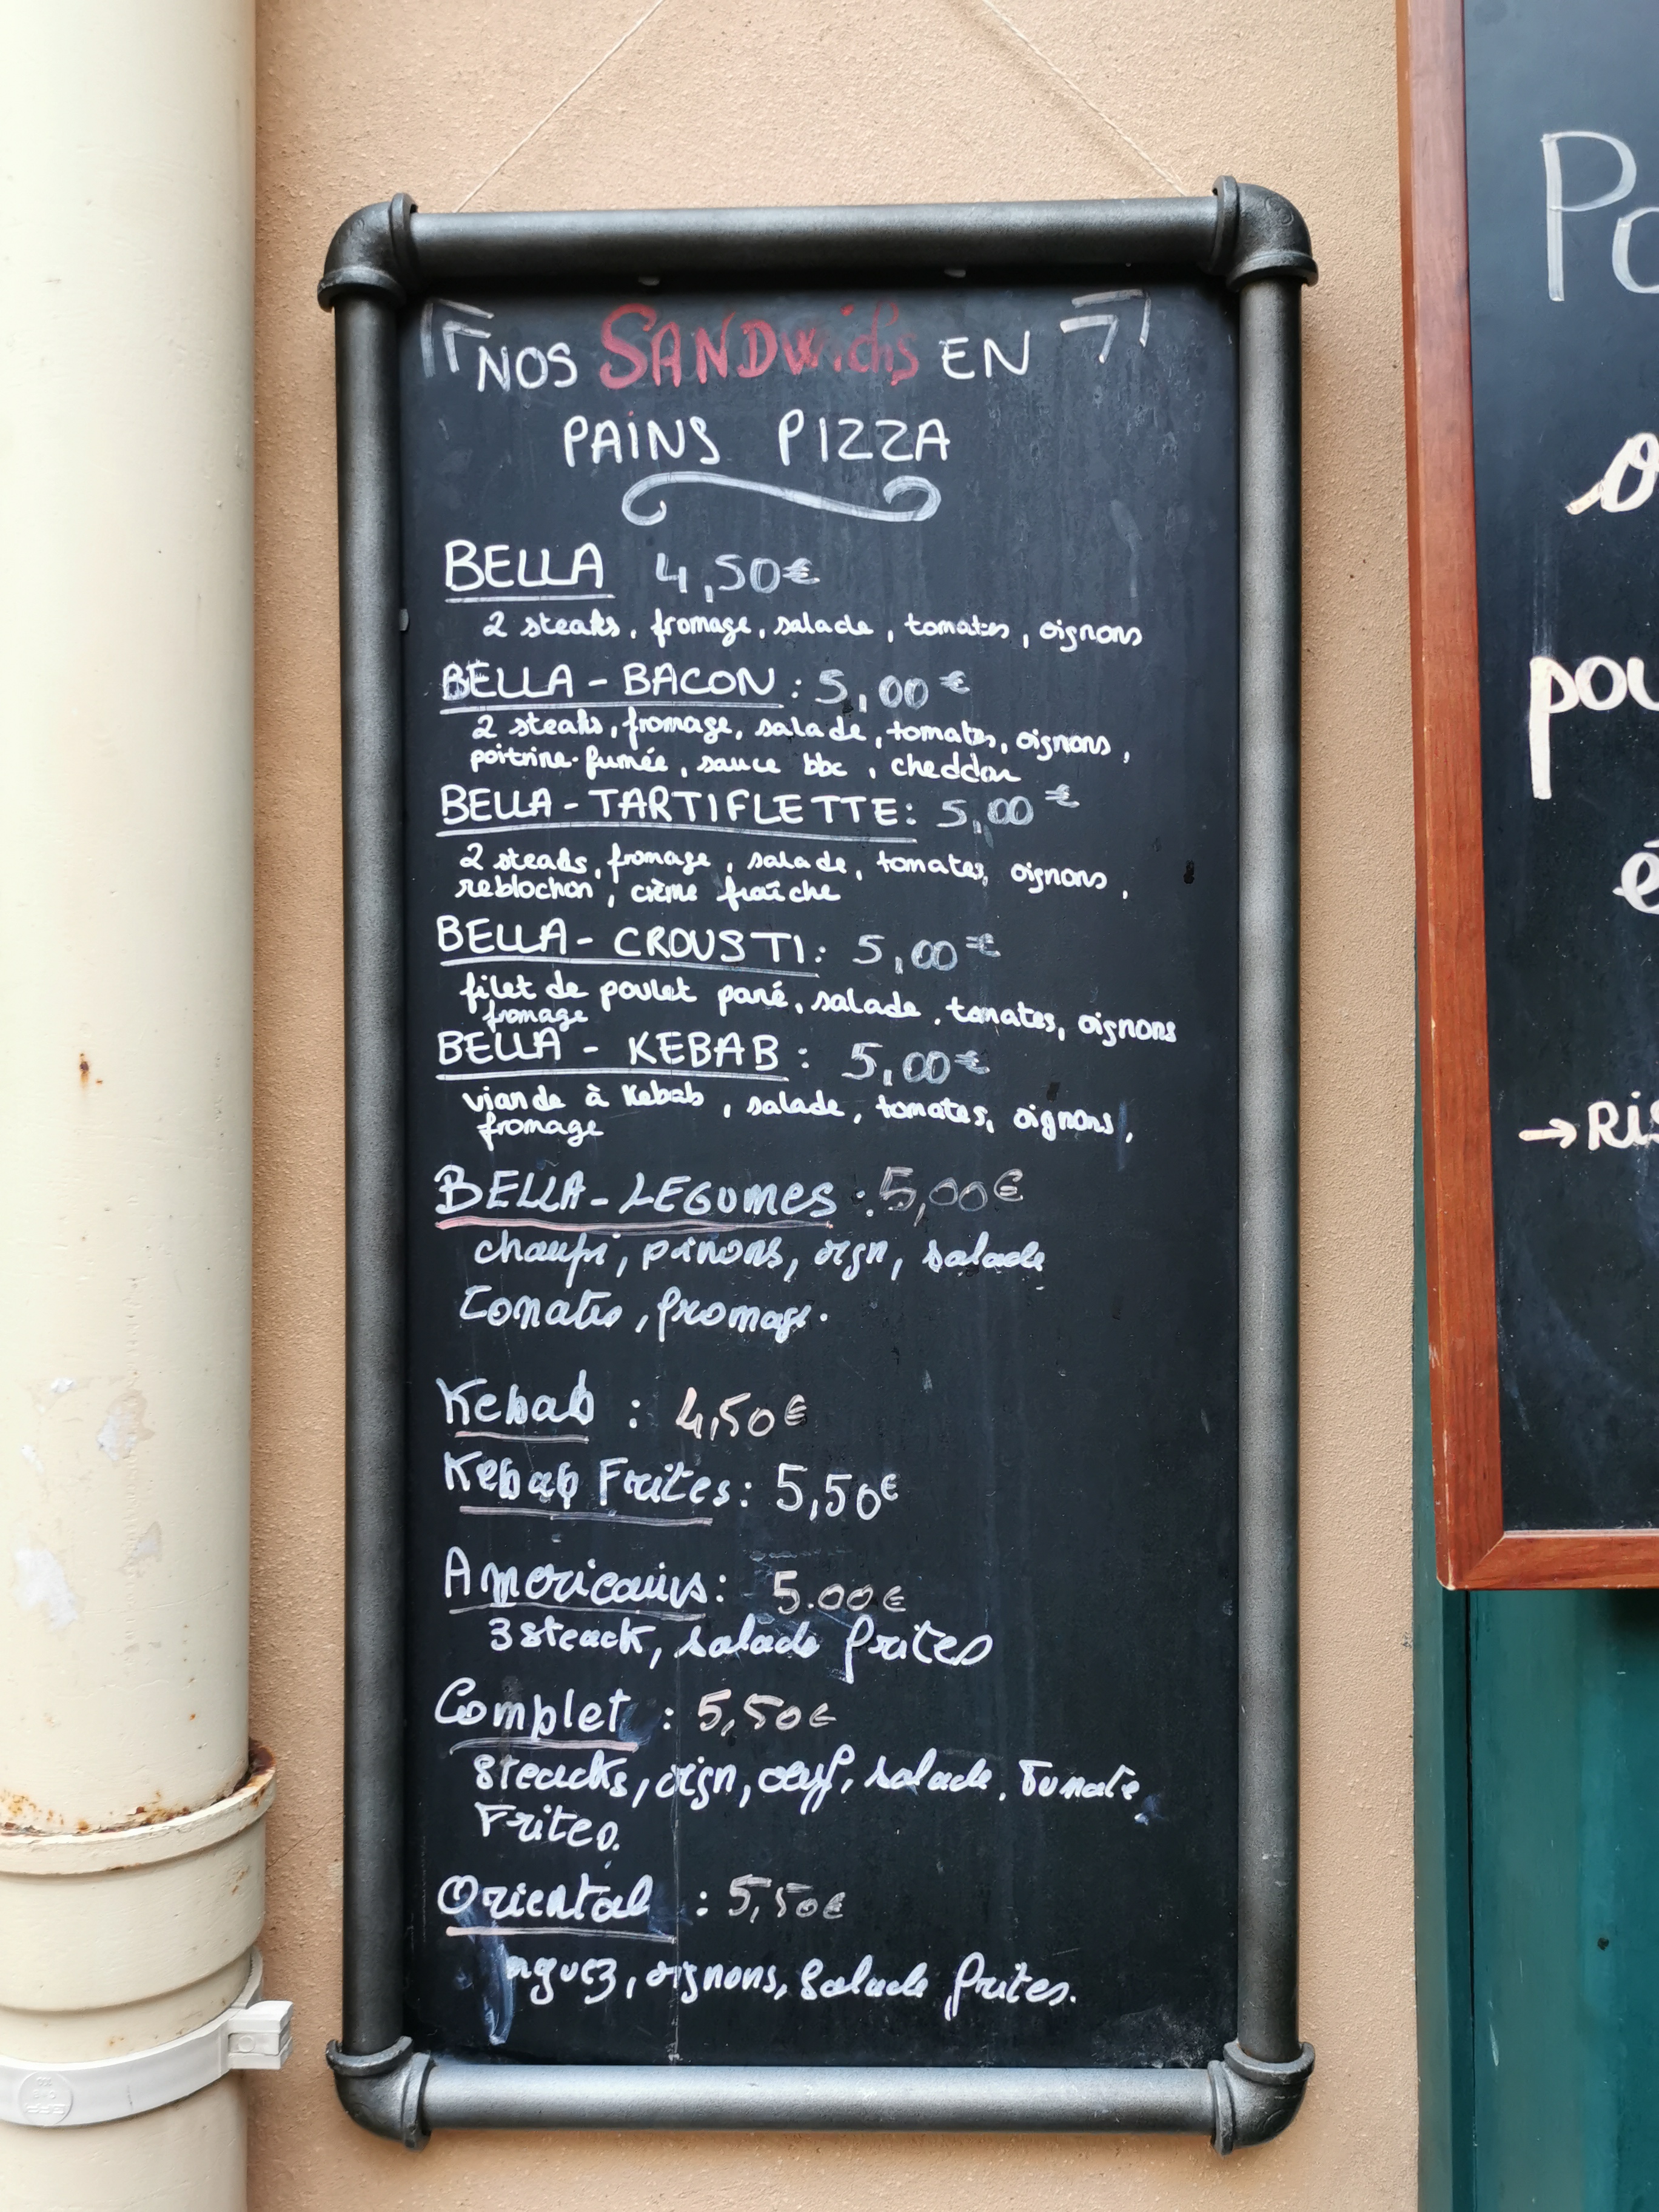 NOS SANDWichs EN
PAINS PIZZA
BELLA 4,50€
2 steaks, fromage, salade, tomates, oignons
BELLA - BACON : 5,00€
2 steaks, fromage, salade, tomates, oignons,
poitrine fumée, sauce bbc, cheddar
BELLA - TARTIFLETTE : 5,00€
2 steaks, fromage, salade, tomates, oignons,
reblochon, crème fraîche
BELLA - CROUSTI : 5,00€
filet de poulet pané, salade, tomates, oignons
fromage
BELLA - KEBAB : 5,00€
viande à Kebab, salade, tomates, oignons,
fromage
BELLA - LEGUMES : 5,00€
oign, salade
Tomates, fromage.
Kebab : 4,50€
Kebab Frites : 5,50€
Americains : 5.00€
3 steack, salade frites
Complet : 5,50€
Steacks, oign, oeuf, salade, Tomate,
Frites.
Oriental : 5,50€
oignons, Salade frites.
Po
o
pou
e
→ Ris